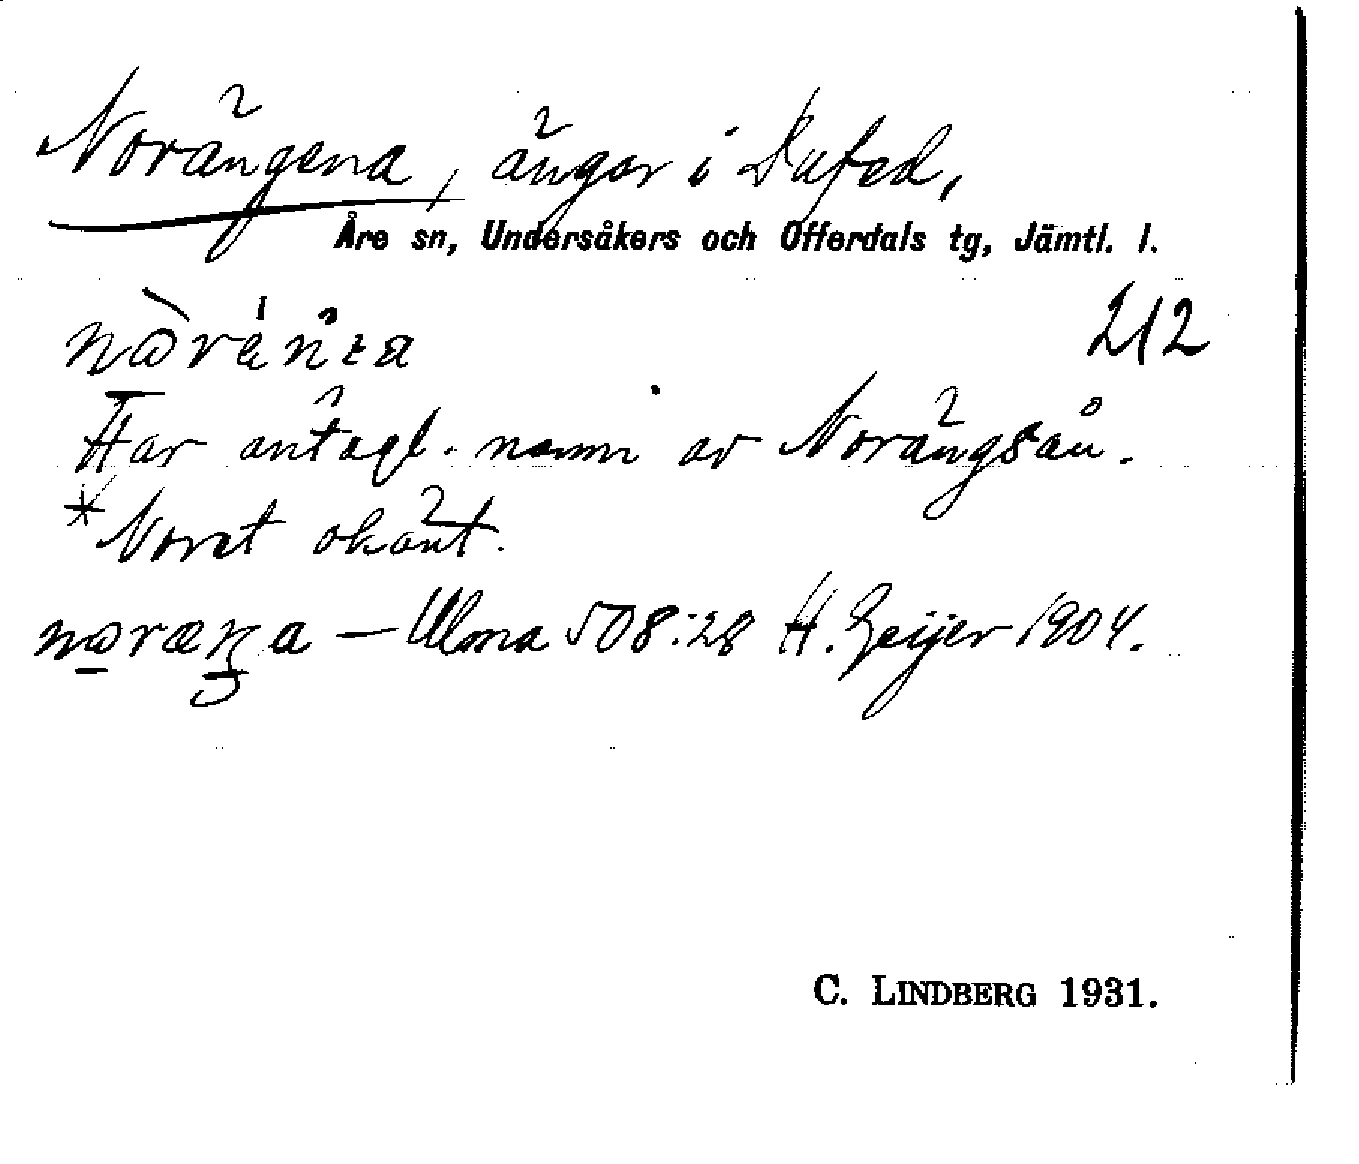 Norängena, ängar i Dufed,
Åre sn, Undersåkers och Offerdals tg, Jämtl. l.
212
Har antagl. namn av Norängsån.
*Noret okänt.
— Ulma 508:28 H. Geijer 1904.
C. LINDBERG 1931.